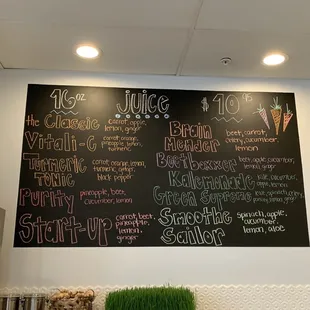 16oz juice $10.75
the Classic carrot, apple,
lemon, ginger
Vitali-C carrot, orange,
pineapple, lemon
Turmeric
Tonic
carrot, orange, lemon,
turmeric, ginger
black pepper
Purity pineapple, beet,
cucumber, lemon
Start-Up carrot, beet,
pineapple,
lemon,
ginger
Brain
Mender
beet, carrot,
celery, cucumber,
lemon
Beetboxxer beet, apple, cucumber,
lemon, ginger
Kalemonade kale, cucumber,
apple, lemon
Green Supreme
Smoothe
Sailor
spinach, apple,
cucumber,
lemon, aloe